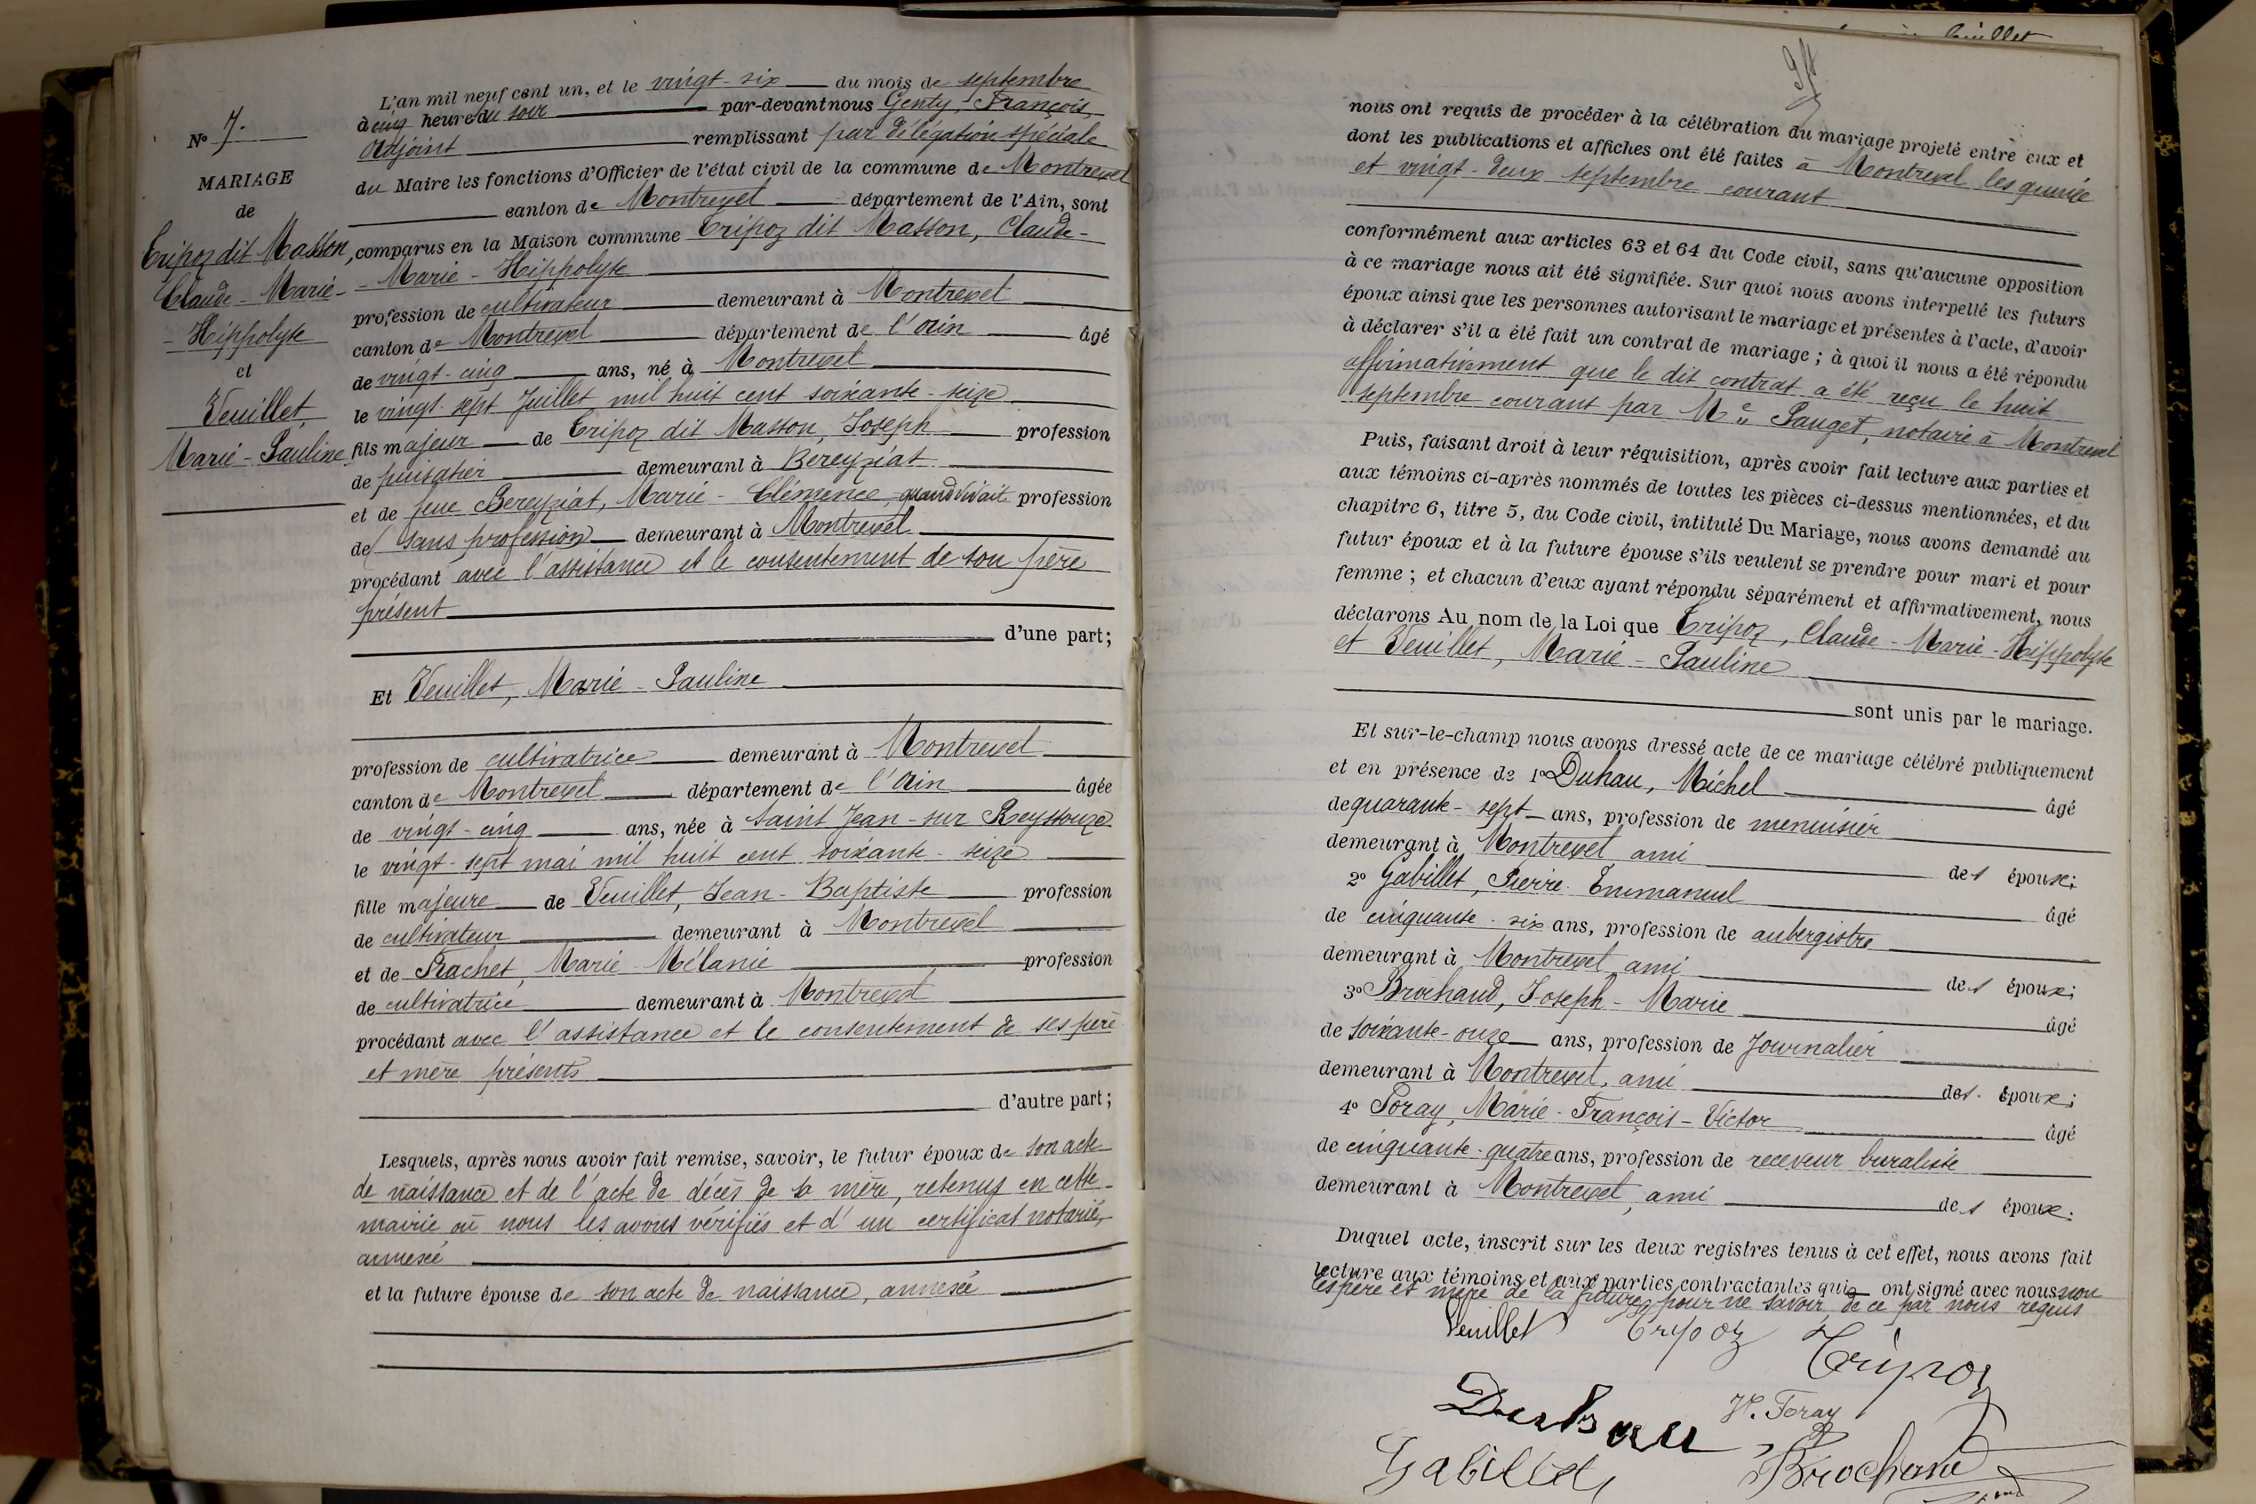 L'an mil neuf cent un, et le vingt-six du mois de septembre
à cinq heure du soir par-devant nous Genty, François,
adjoint remplissant par délégation spéciale
du Maire les fonctions d'Officier de l'état civil de la commune de Montrevel
canton de Montrevel département de l'Ain, sont
comparus en la Maison commune Tripoz dit Masson, Claude-
- Marie - Hippolyte
profession de cultivateur demeurant à Montrevel
canton de Montrevel département de l'Ain âgé
de vingt-cinq ans, né à Montrevel
le vingt-sept Juillet mil huit cent soixante-seize
fils majeur de Tripoz dit Masson, Joseph profession
de puisatier demeurant à Bereyziat
et de feue Bereyziat, Marie - Clémence, quand vivait profession
de sans profession demeurant à Montrevel
procédant avec l'assistance et le consentement de son père
présent
d'une part;
Et Veuillet, Marie-Pauline
profession de cultivatrice demeurant à Montrevel
canton de Montrevel département de l'Ain âgée
de vingt-cinq ans, née à Saint Jean-sur Reyssouze
le vingt-sept mai mil huit cent soixante-seize
fille majeure de Veuillet, Jean-Baptiste profession
de cultivateur demeurant à Montrevel
et de Rachet, Marie Mélanie profession
de cultivatrice demeurant à Montrevel
procédant avec l'assistance et le consentement de ses père
et mère présents
d'autre part;
Lesquels, après nous avoir fait remise, savoir, le futur époux de son acte
de naissance et de l'acte de décès de sa mère, retenus en cette
mairie où nous les avons vérifiés et d'un certificat notarié,
annexé
et la future épouse de son acte de naissance, annexé
N° 7.
MARIAGE
de
Tripoz dit Masson,
Claude-Marie-
-Hippolyte
et
Veuillet,
Marie-Pauline
nous ont requis de procéder à la célébration du mariage projeté entre eux et
dont les publications et affiches ont été faites à Montrevel les quinze
et vingt-deux septembre courant
conformément aux articles 63 et 64 du Code civil, sans qu'aucune opposition
à ce mariage nous ait été signifiée. Sur quoi nous avons interpellé les futurs
époux ainsi que les personnes autorisant le mariage et présentes à l'acte, d'avoir
à déclarer s'il a été fait un contrat de mariage; à quoi il nous a été répondu
affirmativement que le dit contrat a été reçu le huit
septembre courant par Me Pauget, notaire à Montrevel
Puis, faisant droit à leur réquisition, après avoir fait lecture aux parties et
aux témoins ci-après nommés de toutes les pièces ci-dessus mentionnées, et du
chapitre 6, titre 5, du Code civil, intitulé Du Mariage, nous avons demandé au
futur époux et à la future épouse s'ils veulent se prendre pour mari et pour
femme; et chacun d'eux ayant répondu séparément et affirmativement, nous
déclarons Au nom de la Loi que Tripoz, Claude-Marie-Hippolyte
et Veuillet, Marie-Pauline
sont unis par le mariage.
Et sur-le-champ nous avons dressé acte de ce mariage célébré publiquement
et en présence de 1° Duhau, Michel âgé
de quarante-sept ans, profession de menuisier
demeurant à Montrevel ami des époux;
2° Gabillet, Pierre Emmanuel âgé
de cinquante-six ans, profession de aubergiste
demeurant à Montrevel, ami des époux;
3° Brochaud, Joseph-Marie âgé
de soixante-onze ans, profession de Journalier
demeurant à Montrevel, ami des époux;
4° Foray, Marie-François-Victor âgé
de cinquante-quatre ans, profession de receveur buraliste
demeurant à Montrevel, ami des époux.
Duquel acte, inscrit sur les deux registres tenus à cet effet, nous avons fait
lecture aux témoins et aux parties contractantes qui ont signé avec nous non
les père et mère de la future pour ne savoir de ce par nous requis
Veuillet Tripoz Tripoz
Duhau V. Foray
Gabillet Brochaud